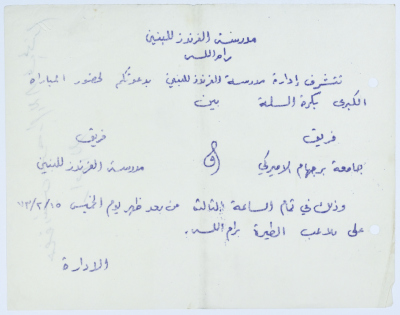 مدرسة الفرندز للبنين
رام الله
تتشرف إدارة مدرسة الفرندز للبنين بدعوتكم لحضور المباراة
الكبرى بكرة السلة بين
فريق فريق
جامعة برجهام الاميركي و مدرسة الفرندز للبنين
وذلك في تمام الساعة الثالثة من بعد ظهر يوم الخميس ١٥/٢/٧٣
على ملاعب الطيرة برام الله.
الادارة